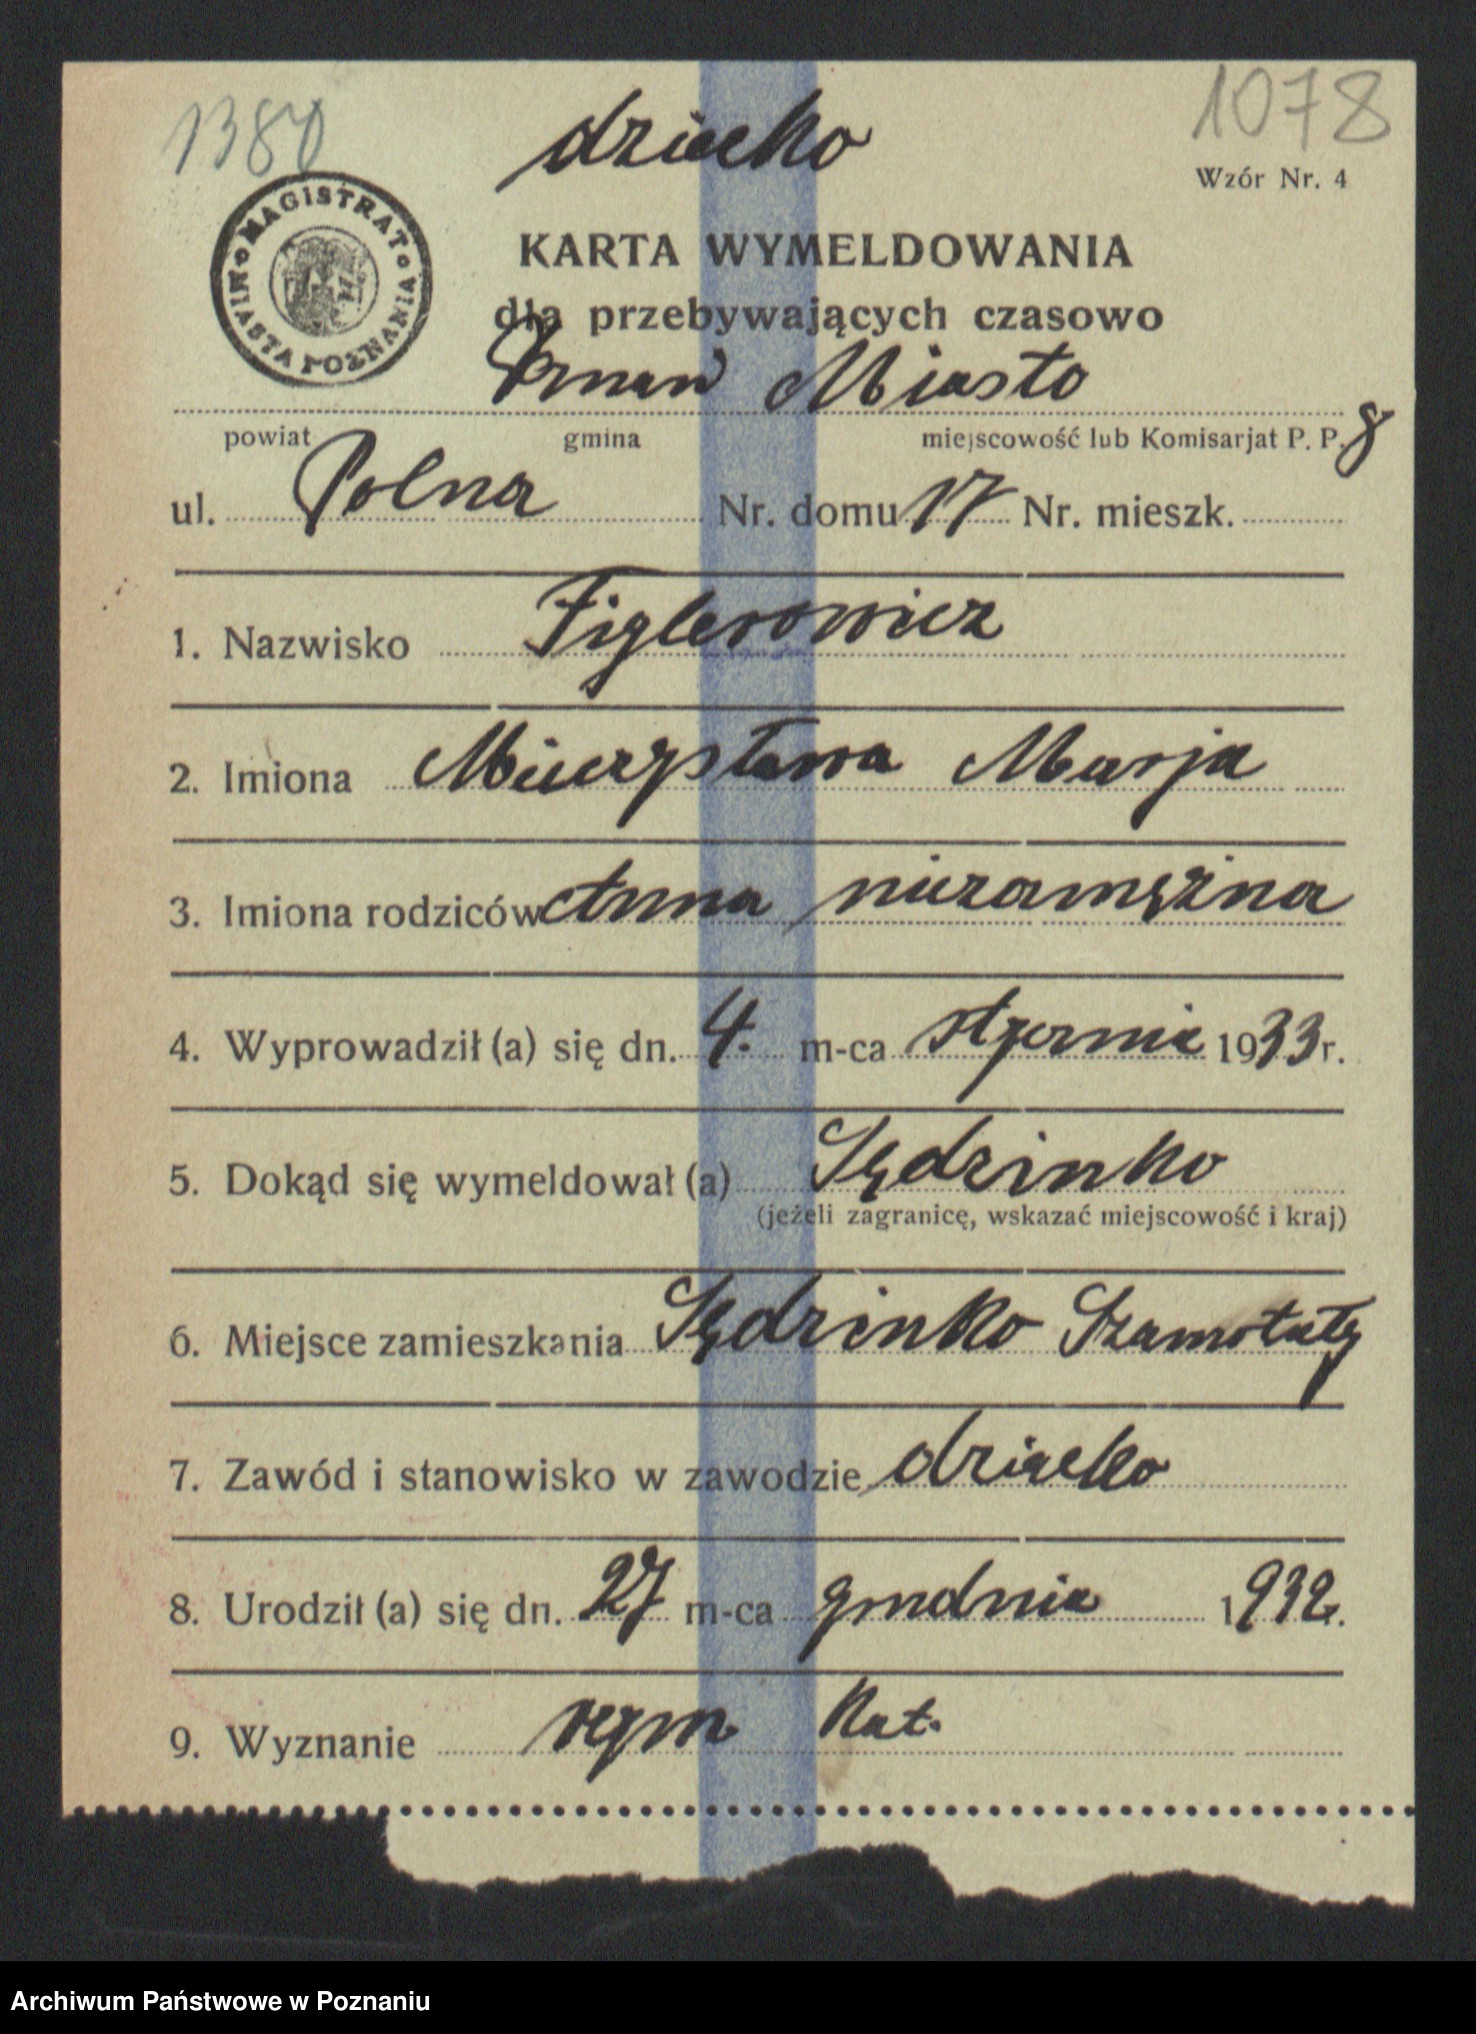 1380
1078
dziecko
Wzór Nr. 4
MAGISTRAT MIASTA POZNANIA
KARTA WYMELDOWANIA
dla przebywających czasowo
Poznań Miasto
powiat gmina miejscowość lub Komisarjat P. P. 8
ul. Polna Nr. domu 17 Nr. mieszk.
1. Nazwisko Figlerowicz
2. Imiona Mieczysława Marja
3. Imiona rodziców Anna niezamężna
4. Wyprowadził (a) się dn. 4. m-ca stycznia 1933 r.
5. Dokąd się wymeldował (a) Sędzinko
(jeżeli zagranicę, wskazać miejscowość i kraj)
6. Miejsce zamieszkania Sędzinko Szamotuły
7. Zawód i stanowisko w zawodzie dziecko
8. Urodził (a) się dn. 27 m-ca grudnia 1932 r.
9. Wyznanie rzym. kat.
Archiwum Państwowe w Poznaniu